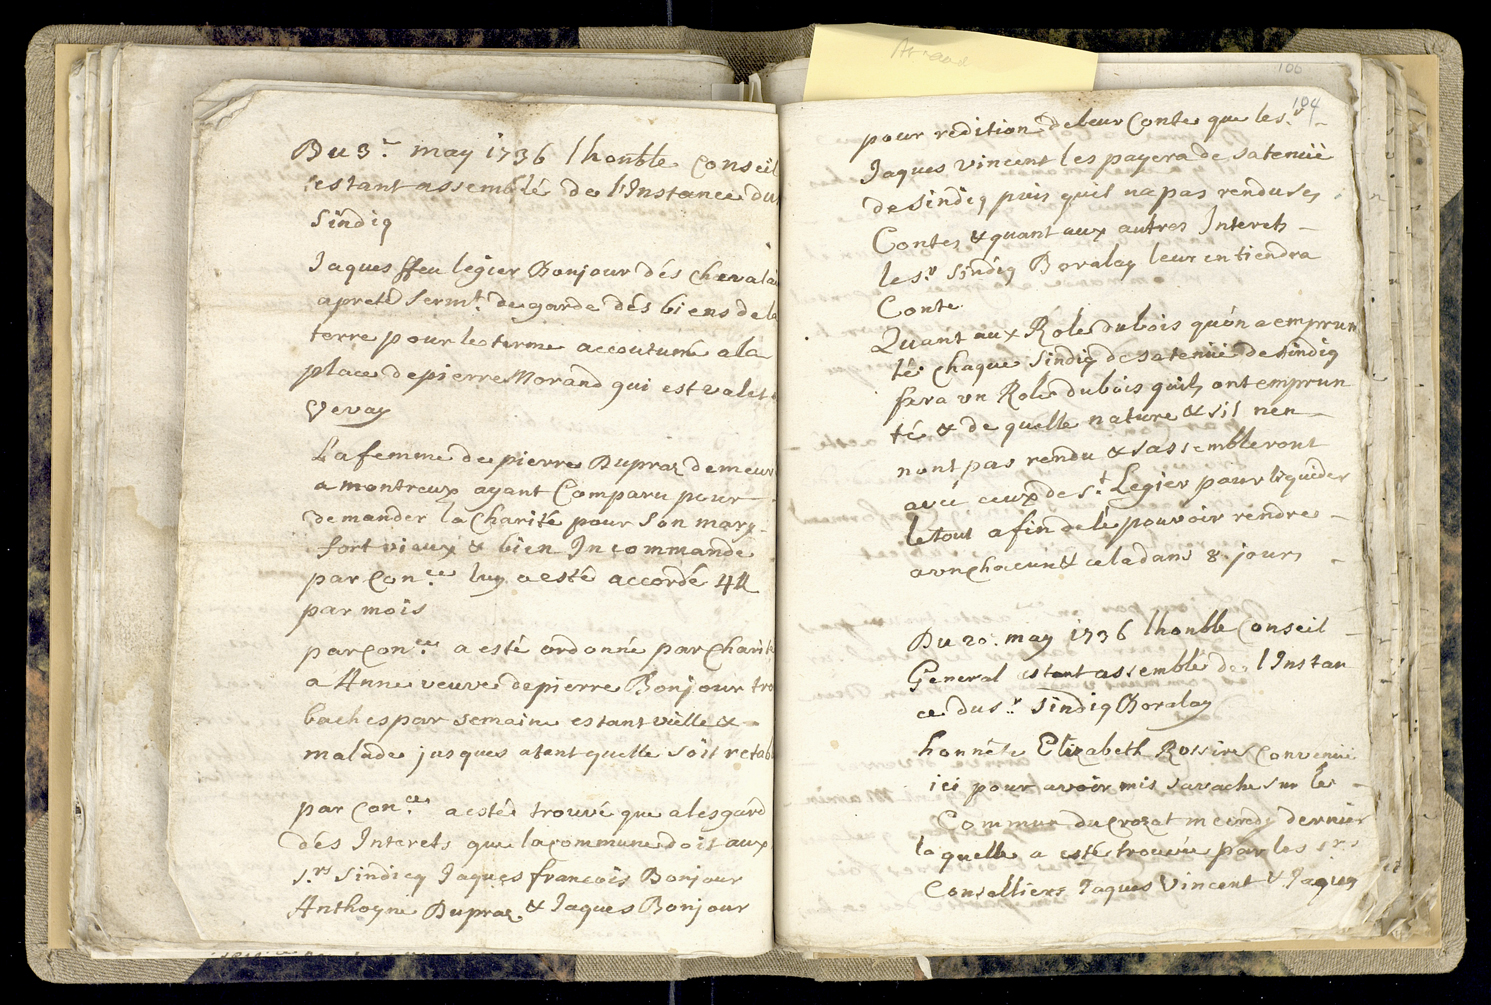 Du 3.e may 1736 lhonble Conseil
estant assemblé de l'Instance du
Sindiq
Jaques ffeu legier Bonjour dés Chevala
a preté Sermt. de garde dés biens de la
terre pour le terme accoutumé a la
place de pierre Morand qui est valet
Vevay
La femme de pierre Dupraz demeur
a montreux ayant Comparu pour
demander la Charité pour son mary
fort vieux & bien Incommandé
par Con.ce luy a esté accordé 4 ll
par mois
par Con.ce a esté ordonné par Charité
a Anne veuve de pierre Bonjour tro
baches par semaine estant vielle &
malade jusques a tant quelle soit retab
par Con.ce a esté trouvé que a lesgard
dés Interets que la commune doit aux
s.rs Sindicq Jaques francois Bonjour
Anthoyne Dupraz & Jaques Bonjour
106
104
pour redition de leur Conte que le s.r
Jaques Vincent les payera de sa tenüe
de Sindiq puis quil na pas rendu ses
Contes & quant aux autres Interets
le s.r Sindiq Boralay leur en tiendra
Conte
Quant aux Roles du bois quon a emprun
té chaque Sindiq de sa tenüe de Sindiq
fera un Role du bois quils ont emprun
té & de quelle nature & sil nen
nont pas rendu & sassembleront
avec ceux de St. Legier pour liquider
le tout afin de le pouvoir rendre
a un Chacun & cela dans 8. jours
Du 20. may 1736 lhonble Conseil
General estant assemblé de l'Instan
ce du s.r Sindiq Boralay
honnête Elizabeth Rossire Convenüe
ici pour avoir mis sa vache sur le
Commun du Crozet mecredy dernier
laquelle a esté trouvée par les srs
Conselliers Jaques Vincent & Jaques